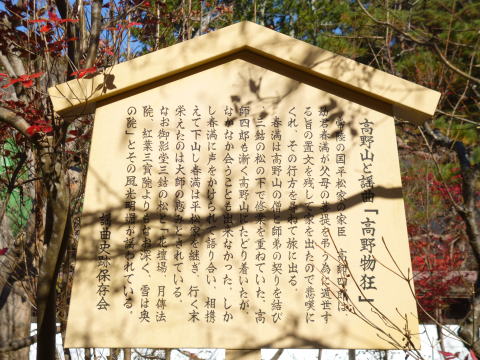 高野山と謡曲「高野物狂」
常陸の国平松家の家臣 高師四郎は、
幼君春満が父母の菩提を弔う為に遁世す
る旨の置文を残して家を出たので悲嘆に
くれ、その行方を尋ねて旅に出る。
春満は高野山の僧と師弟の契りを結び
、三鈷の松の下で修業を重ねていた。高
師四郎も漸く高野山にたどり着いたが、
なかなか会うことも出来なかった。しか
し春満に声をかけられて語り合い、相携
えて下山し春満は平松家を継ぎ、行く末
栄えたのは大師の恵みとされている。
なお御影堂三鈷の松と「壇場、月傳法
院、紅葉三寳院よりなお深く、雪は奥
の院」とその風光明媚が謡われている。
謡曲史跡保存会